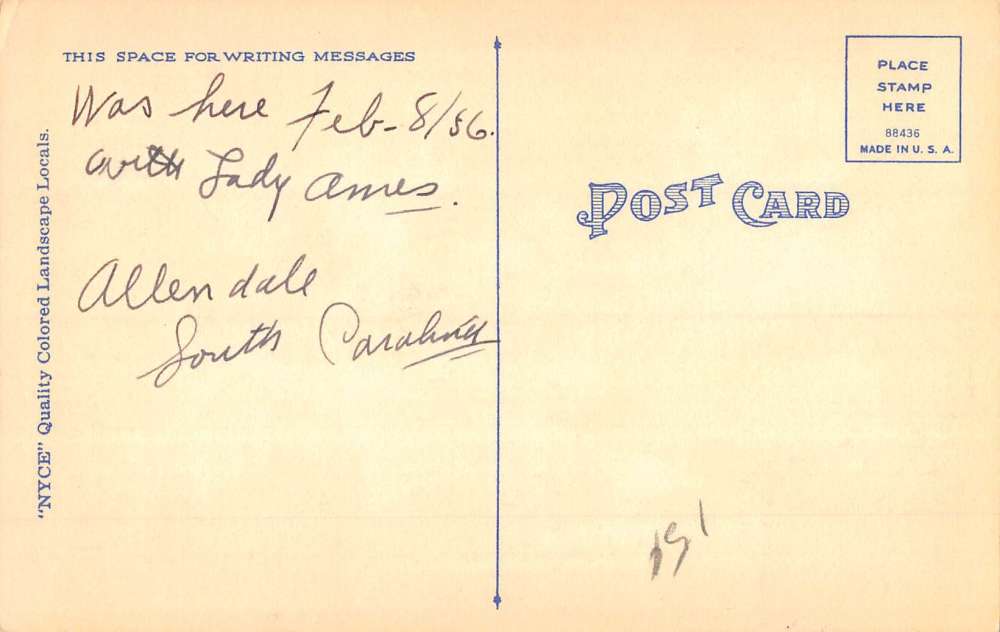 THIS SPACE FOR WRITING MESSAGES
Was here Feb- 8/56.
with Lady Ames.
Allendale
South Carolina
"NYCE" Quality Colored Landscape Locals.
POST CARD
PLACE
STAMP
HERE
88436
MADE IN U. S. A.